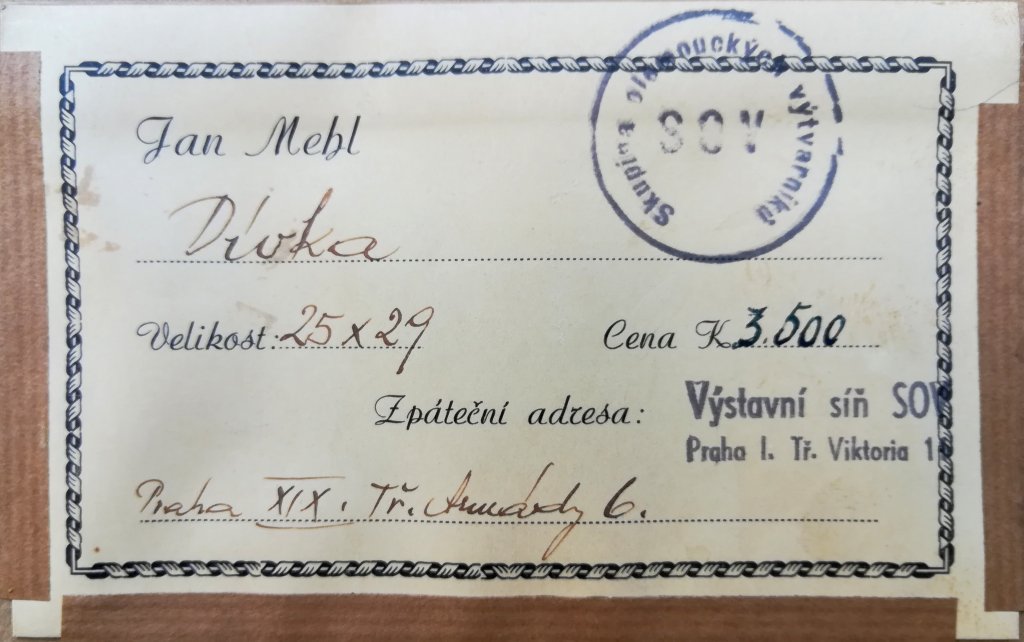 Skupina olomouckých výtvarníků
SOV
Jan Mehl
Dívka
Velikost: 25 x 29
Cena K 3.500
Zpáteční adresa:
Výstavní síň SOV
Praha I. Tř. Viktoria 1
Praha XIX. Tř. Armády 6.